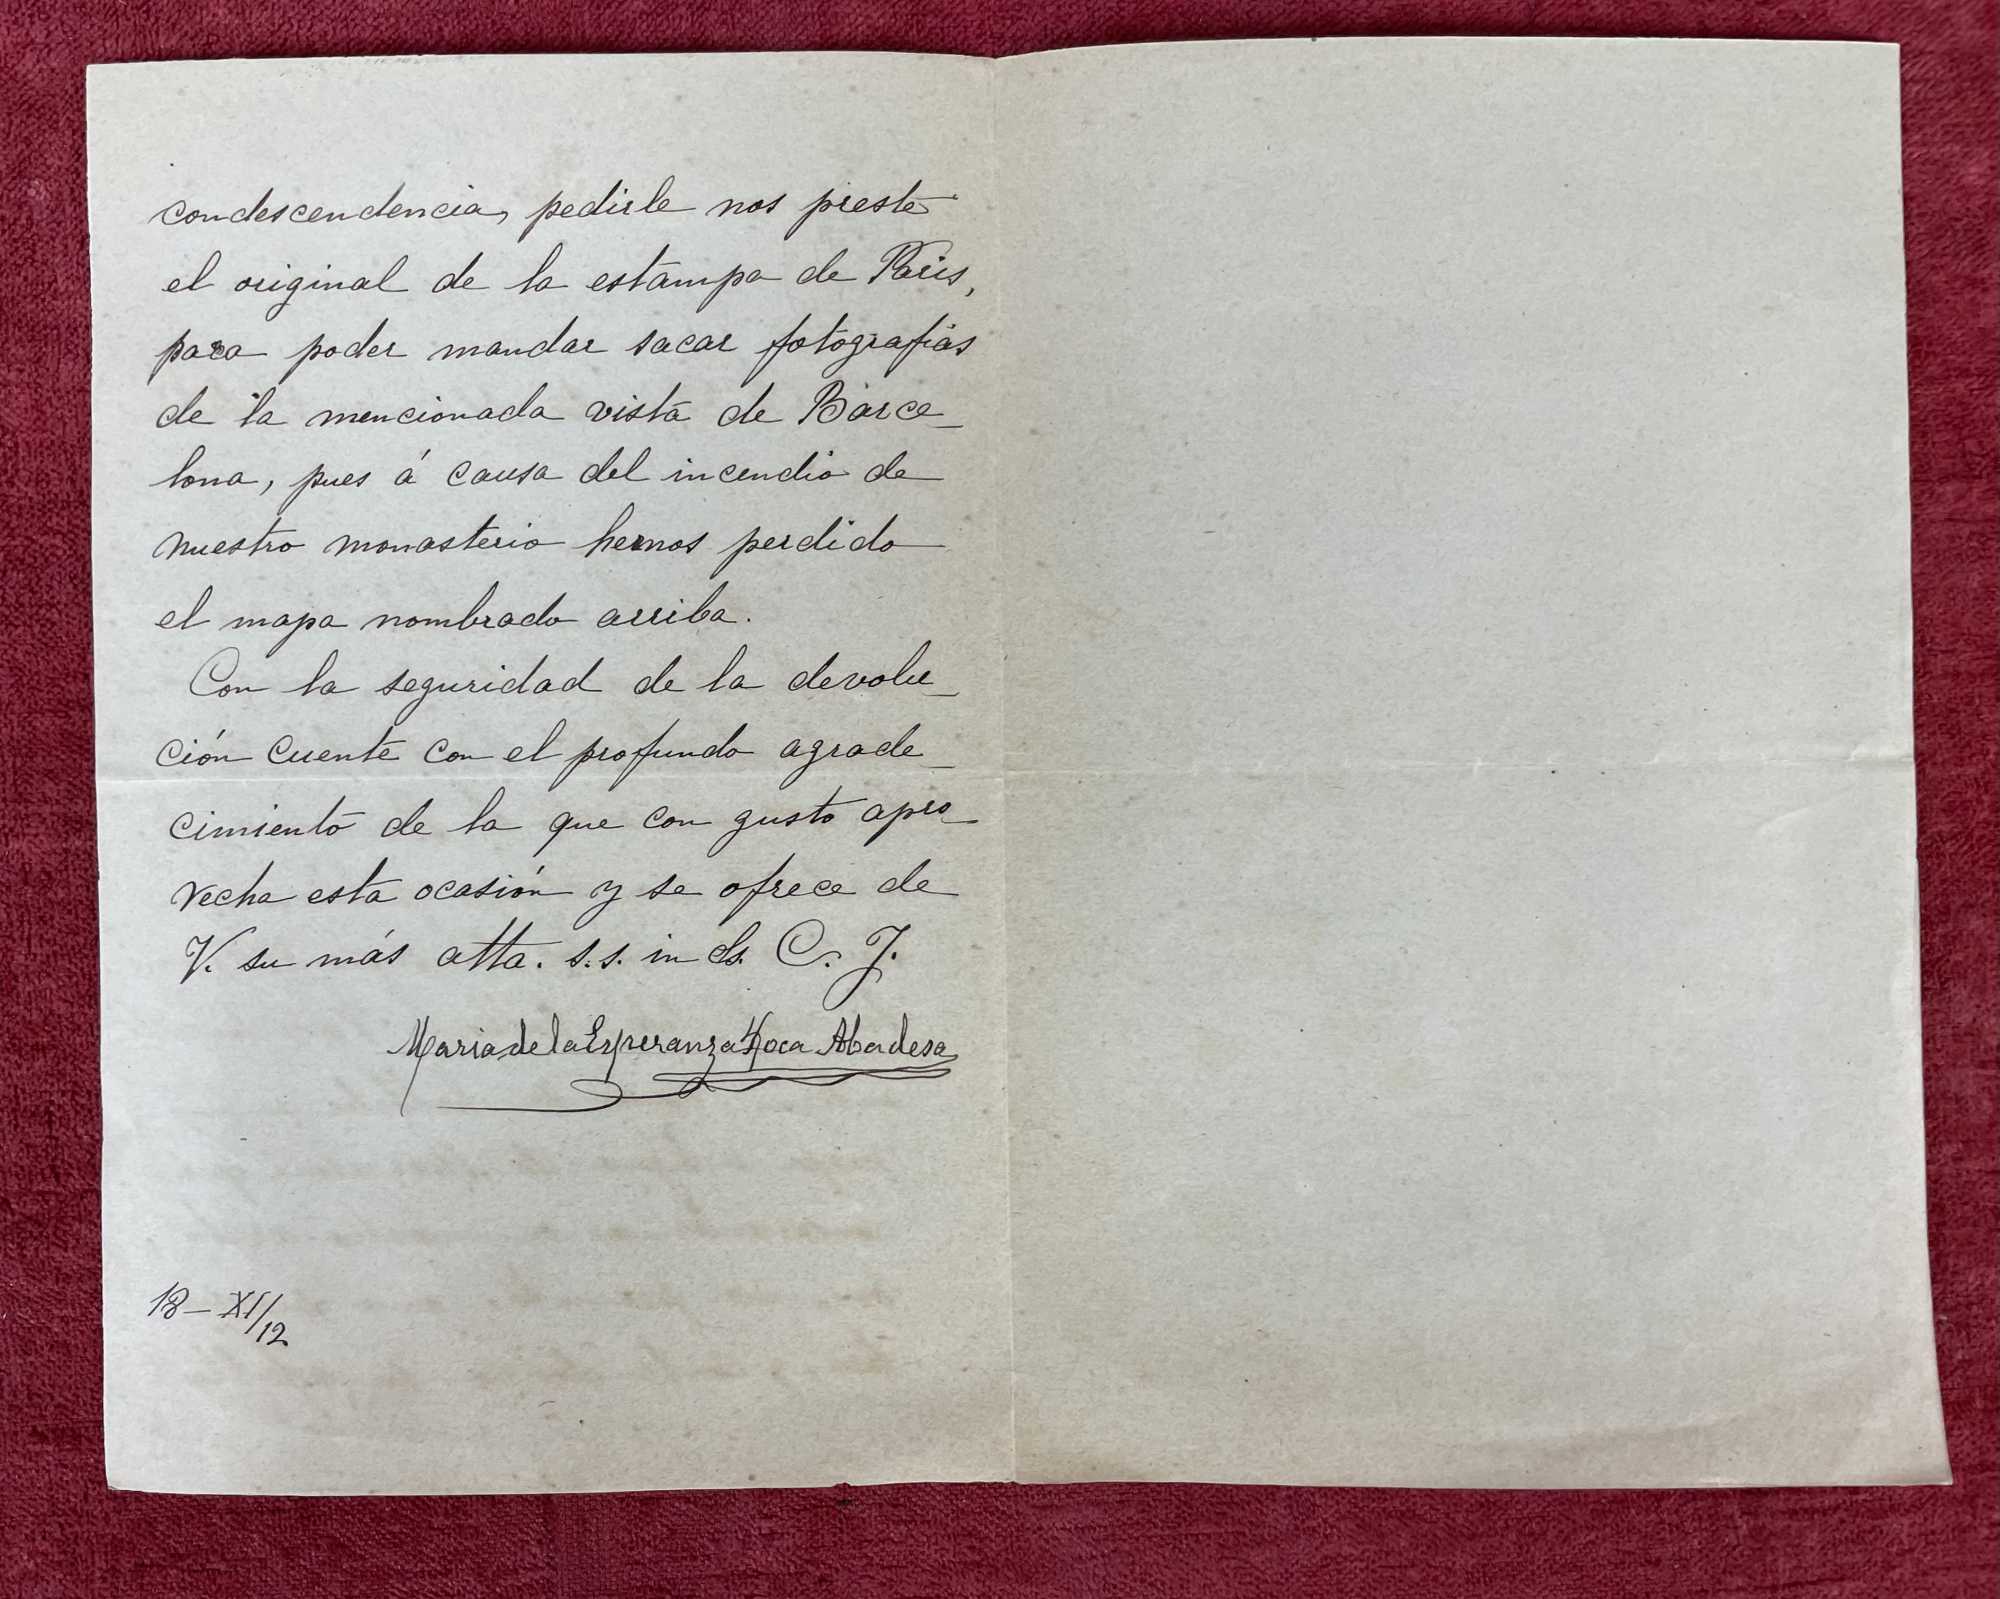 condescendencia, pedirle nos preste
el original de la estampa de Paris,
para poder mandar sacar fotografias
de la mencionada vista de Barce_
lona, pues á causa del incendio de
nuestro monasterio hemos perdido
el mapa nombrado arriba.
Con la seguridad de la devolu_
ción cuente con el profundo agrade_
cimiento de la que con gusto apro_
vecha esta ocasión y se ofrece de
V. su más atta. s.s. in C. J.
Maria de la Esperanza Roca Abadesa
18-XI/12